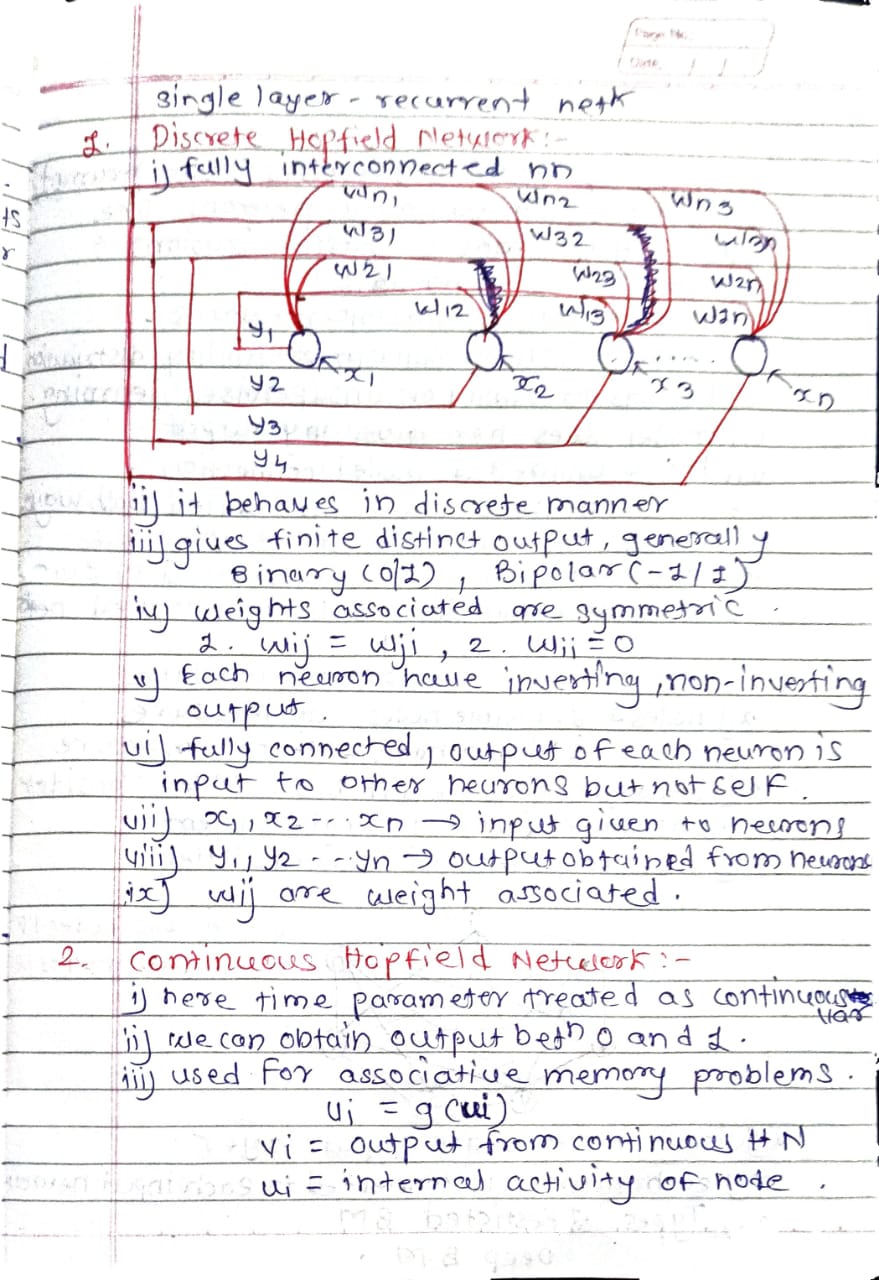 Page No.
Date / /
single layer - recurrent netk
1. Discrete Hopfield Network:-
i) fully interconnected nn
wn1 wn2 wn3
w31 w32 w3n
w21 w23 w2n
w12 w13 w1n
y1
x1 x2 x3 ..... xn
y2
y3
y4
ii) it behaves in discrete manner
iii) gives finite distinct output, generally
Binary (0/1) , Bipolar (-1/1)
iv) weights associated are symmetric .
1. wij = wji , 2. wii = 0
v) Each neuron have inverting, non-inverting
output .
vi) fully connected, output of each neuron is
input to other neurons but not self .
vii) x1, x2 --.. xn → input given to neurons
viii) y1, y2 . - - yn → output obtained from neurons
ix) wij are weight associated .
2. Continuous Hopfield Network :-
i) here time parameter treated as continuous
var
ii) we can obtain output betn 0 and 1 .
iii) used for associative memory problems .
vi = g(ui)
vi = output from continuous HN
ui = internal activity of node .